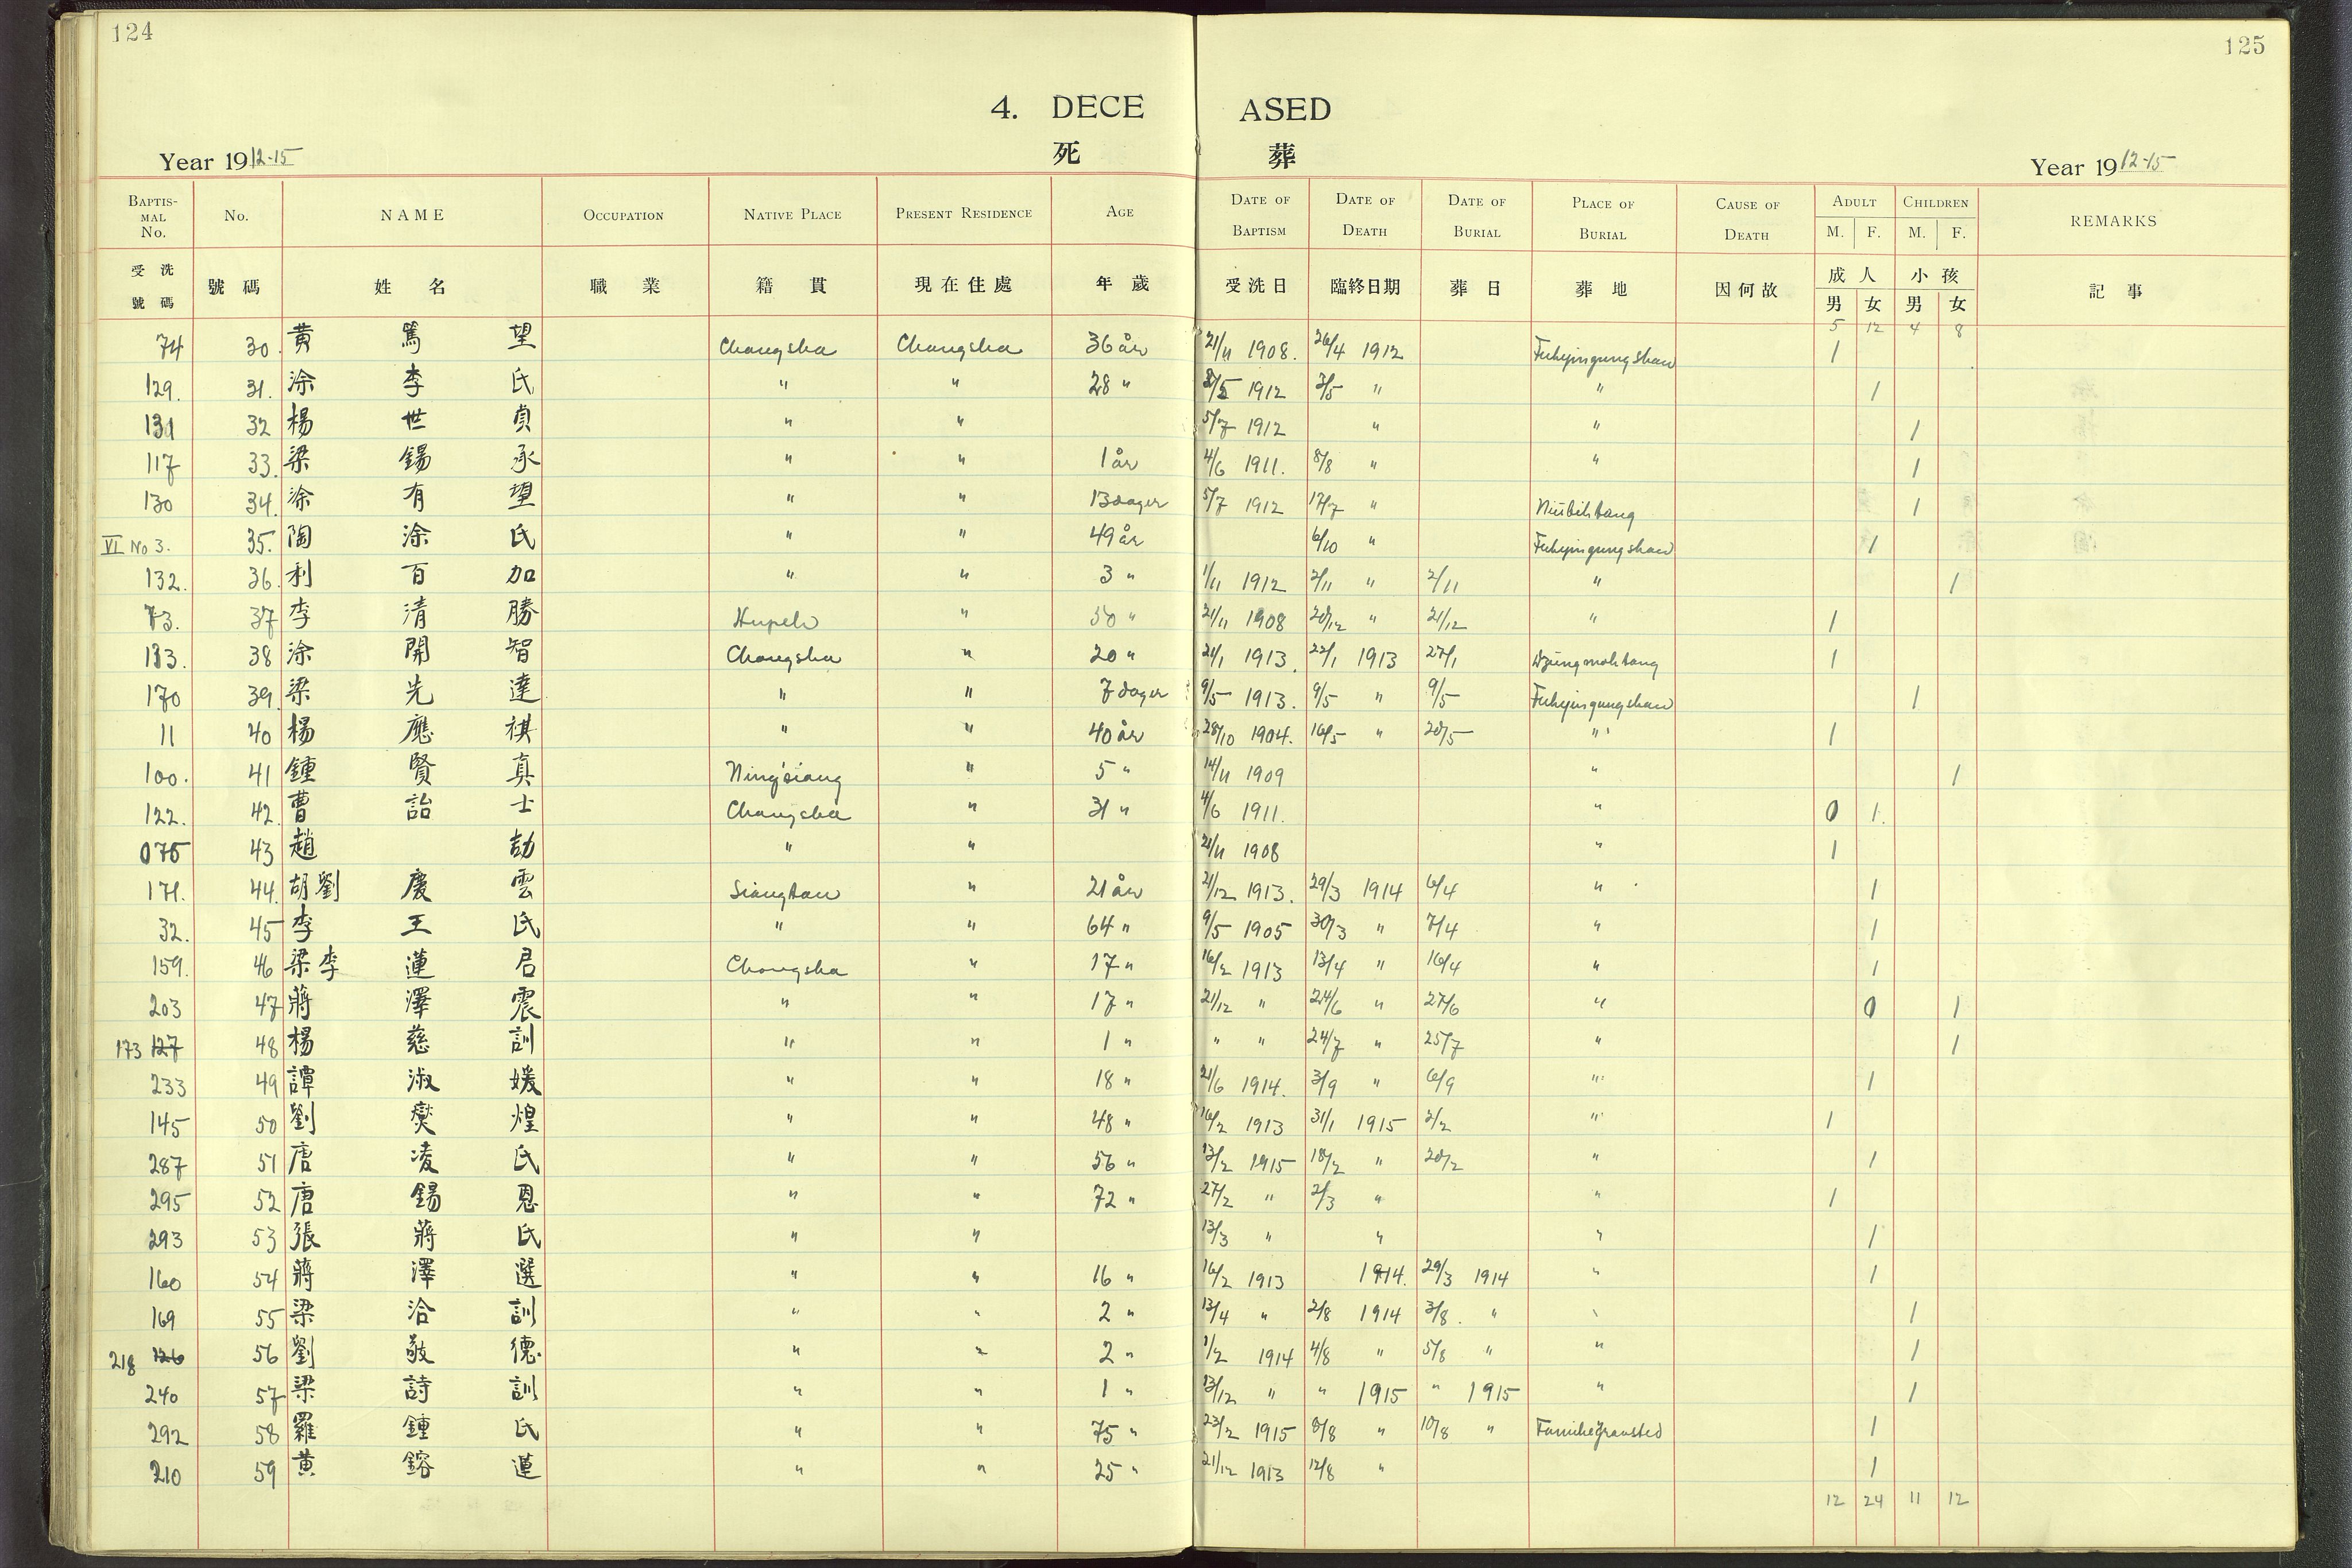 124
125
4. DECEASED
死 葬
Year 1912-15
Year 1912-15
BAPTISMAL No. No. NAME OCCUPATION NATIVE PLACE PRESENT RESIDENCE AGE DATE OF BAPTISM DATE OF DEATH DATE OF BURIAL PLACE OF BURIAL CAUSE OF DEATH ADULT M. F. CHILDREN M. F. REMARKS
受洗號碼 號碼 姓名 職業 籍貫 現在住處 年歲 受洗日 臨終日期 葬日 葬地 因何故 成人 男 女 小孩 男 女 記事
5 12 4 8
74 30. 黄篤望 Changsha Changsha 36 år 21/11 1908. 26/4 1912 Fuhyingungshan 1
129. 31. 涂李氏 " " 28 " 2/5 " " 1
131 32 楊世貞 " " 5/7 1912 " " 1
117 33. 梁錫承 " " 1 år 4/6 1911. 8/8 " " 1
130 34. 涂有望 " " 13 dager 5/7 1912 17/7 " 1
VI No 3. 35. 陶涂氏 " " 49 år 6/10 " Fuhyingungshan 1
132. 36. 利百加 " " 3 " 1/11 1912 2/11 " 2/11 " 1
73. 37 李清勝 Hupeh " 30 " 21/11 1908 20/12 " 21/12 " 1
133. 38 涂開智 Changsha " 20 " 21/1 1913. 22/1 1913 27/1 1
170 39. 梁先達 " " 7 dager 9/5 1913. 9/5 " 9/5 Fuhyingungshan 1
11 40 楊應祺 " " 40 år 28/10 1904. 16/5 " 20/5 " 1
100. 41 鍾賢真 Ning'siang " 5 " 14/11 1909 " 1
122. 42. 曹詒士 Changsha " 31 " 4/6 1911. " 0 1.
075 43 趙劼 " " 21/11 1908 " 1
171. 44. 胡劉慶雲 Siangtan " 21 år 21/12 1913. 29/3 1914 6/4 " 1
32. 45 李王氏 " " 64 " 9/5 1905 30/3 " 7/4 " 1
159. 46 梁李蓮君 Changsha " 17 " 16/2 1913 13/4 " 16/4 " 1
203 47 蔣澤震 " " 17 " 21/12 " 24/6 " 27/6 " 0 1
173 127 48 楊慈訓 " " 1 " " " 24/7 " 25/7 " 1
233 49 譚淑媛 " " 18 " 21/6 1914. 3/9 " 6/9 " 1
145 50 劉奕煌 " " 48 " 16/2 1913 31/1 1915 2/2 " 1
287 51 唐凌氏 " " 56 " 13/2 1915 18/2 " 20/2 " 1
295 52 唐錫恩 " " 72 " 27/2 " 2/3 " " 1
293 53 張蔣氏 " " 13/3 " " " 1
160 54 蔣澤選 " " 16 " 16/2 1913 1914. 29/3 1914 " 1
169 55 梁洽訓 " " 2 " 13/4 " 2/8 1914 3/8. " " 1
218 126 56 劉敬德 " " 2 " 1/2 1914 4/8 " 5/8 " " 1
240 57 梁詩訓 " " 1 " 13/12 " " 1915 " 1915 " 1
292 58 羅鍾氏 " " 75 " 23/2 1915 8/8 " 10/8 " Familiegravsted 1
210 59 黄鎔蓮 " " 25 " 21/12 1913 12/8 " 1
12 24 11 12